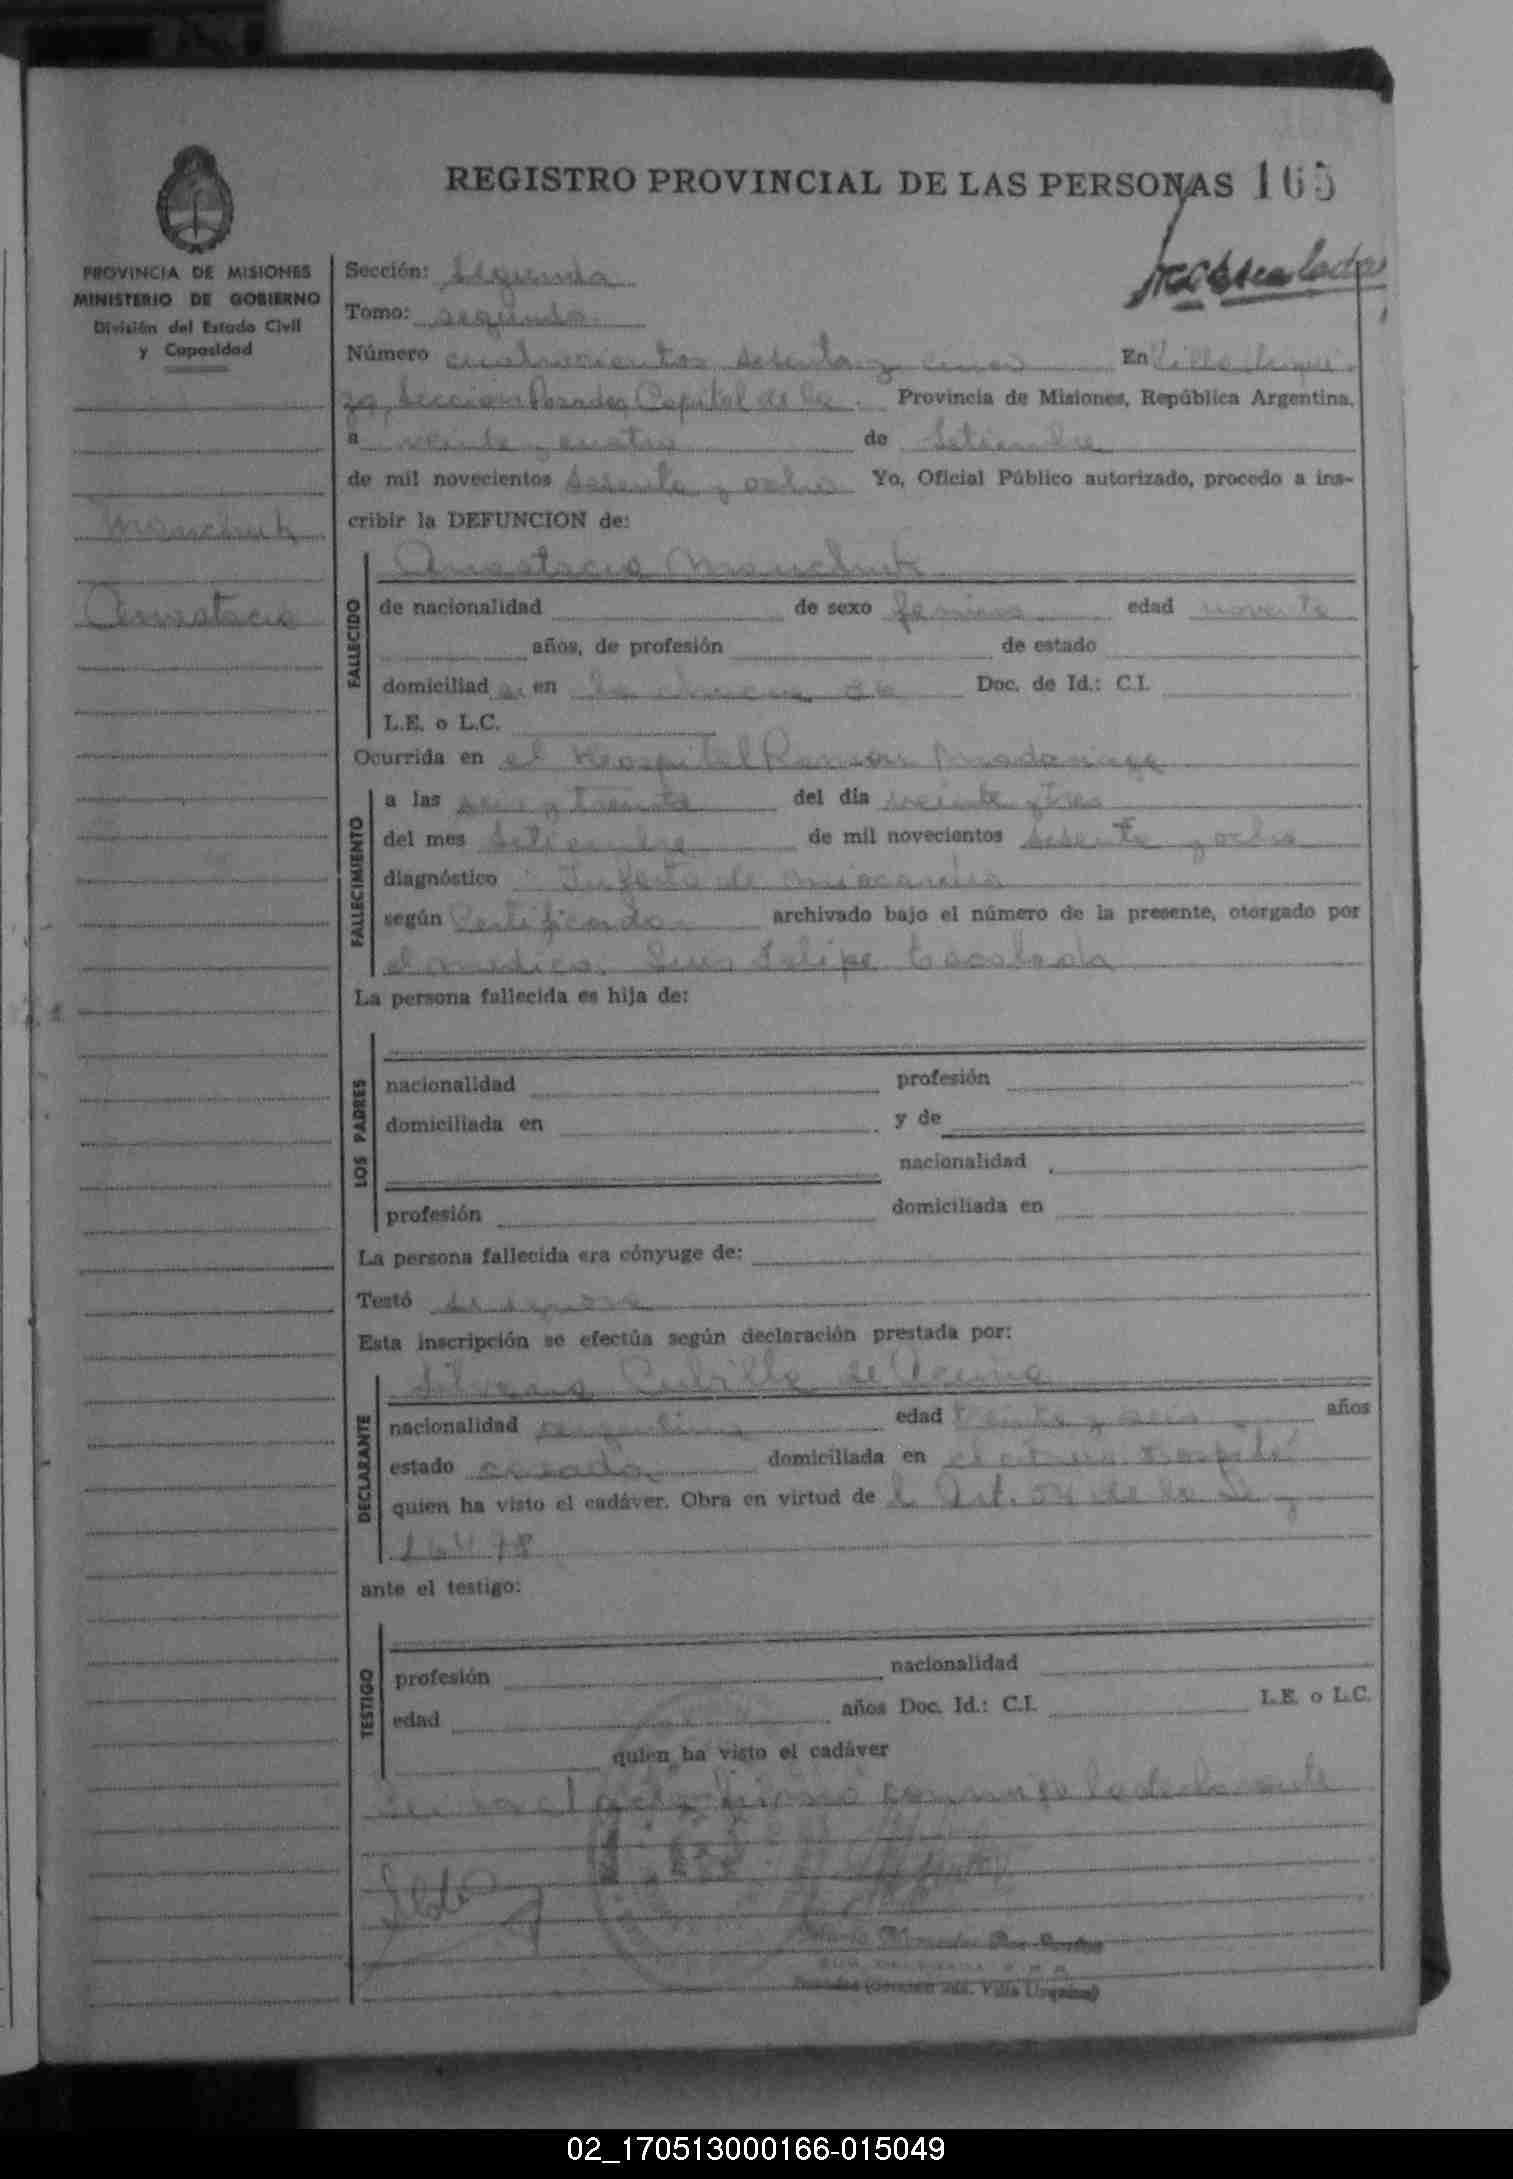 REGISTRO PROVINCIAL DE LAS PERSONAS 165
PROVINCIA DE MISIONES
MINISTERIO DE GOBIERNO
División del Estado Civil
y Capacidad
Sección: Segunda
Tomo: segundo
Número cuatrocientos sesenta y cinco En Villa Urqui-
za, Sección Posadas Capital de la Provincia de Misiones, República Argentina,
a veinte y cuatro de Setiembre
de mil novecientos sesenta y ocho Yo, Oficial Público autorizado, procedo a ins-
cribir la DEFUNCION de:
Manchuk
Anastacia
Anastacia Manchuk
FALLECIDO
de nacionalidad de sexo femenino edad noventa
años, de profesión de estado
domiciliada en la chacra Doc. de Id.: C.I.
L.E. o L.C.
Ocurrida en el Hospital Ramón Madariaga
FALLECIMIENTO
a las seis y treinta del día veinte y tres
del mes Setiembre de mil novecientos sesenta y ocho
diagnóstico Infarto de miocardio
según Certificado archivado bajo el número de la presente, otorgado por
el medico Luis Felipe
La persona fallecida es hija de:
LOS PADRES
nacionalidad profesión
domiciliada en y de
nacionalidad
profesión domiciliada en
La persona fallecida era cónyuge de:
Testó se ignora
Esta inscripción se efectúa según declaración prestada por:
Silvana Cubilla de Acuña
DECLARANTE
nacionalidad argentina edad treinta y seis años
estado casada domiciliada en el citado Hospital
quien ha visto el cadáver. Obra en virtud de l Art. 54 de la Ley
16478
ante el testigo:
TESTIGO
profesión nacionalidad
edad años Doc. Id.: C.I. L.E. o L.C.
quien ha visto el cadáver
Leida el acta firmó conmigo la declarante
Villa Urquiza)
02_170513000166-015049